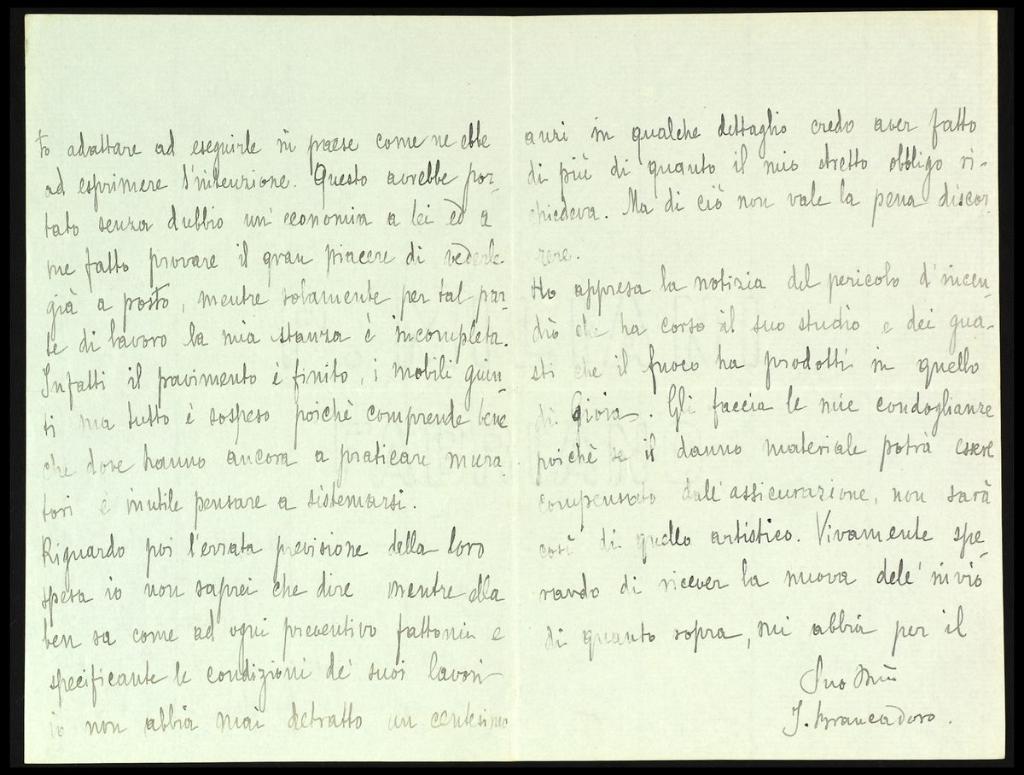 to adattare ad eseguirle in paese come ne ebbe
ad esprimere l'intenzione. Questo avrebbe por-
tato senza dubbio un'economia a lei ed a
me fatto provare il gran piacere di vederle
già a posto, mentre solamente per tal par-
te di lavoro la mia stanza è incompleta.
Infatti il pavimento è finito, i mobili giun-
ti ma tutto è sospeso poichè comprende bene
che dove hanno ancora a praticare mura-
tori è inutile pensare a sistemarsi.
Riguardo poi l'errata previsione della loro
spesa io non saprei che dire mentre ella
ben sa come ad ogni preventivo fattomi e
specificante le condizioni de' suoi lavori
io non abbia mai detratto un centesimo
anzi in qualche dettaglio credo aver fatto
di più di quanto il mio stretto obbligo ri-
chiedeva. Ma di ciò non vale la pena discor-
rere.
Ho appresa la notizia del pericolo d'incen-
dio che ha corso il suo studio e dei gua-
sti che il fuoco ha prodotti in quello
di Gioia. Gli faccia le mie condoglianze
poichè se il danno materiale potrà essere
compensato dall'assicurazione, non sarà
così di quello artistico. Vivamente spe-
rando di ricever la nuova dell'invio
di quanto sopra, mi abbia per il
Suo
J. Brancadoro.